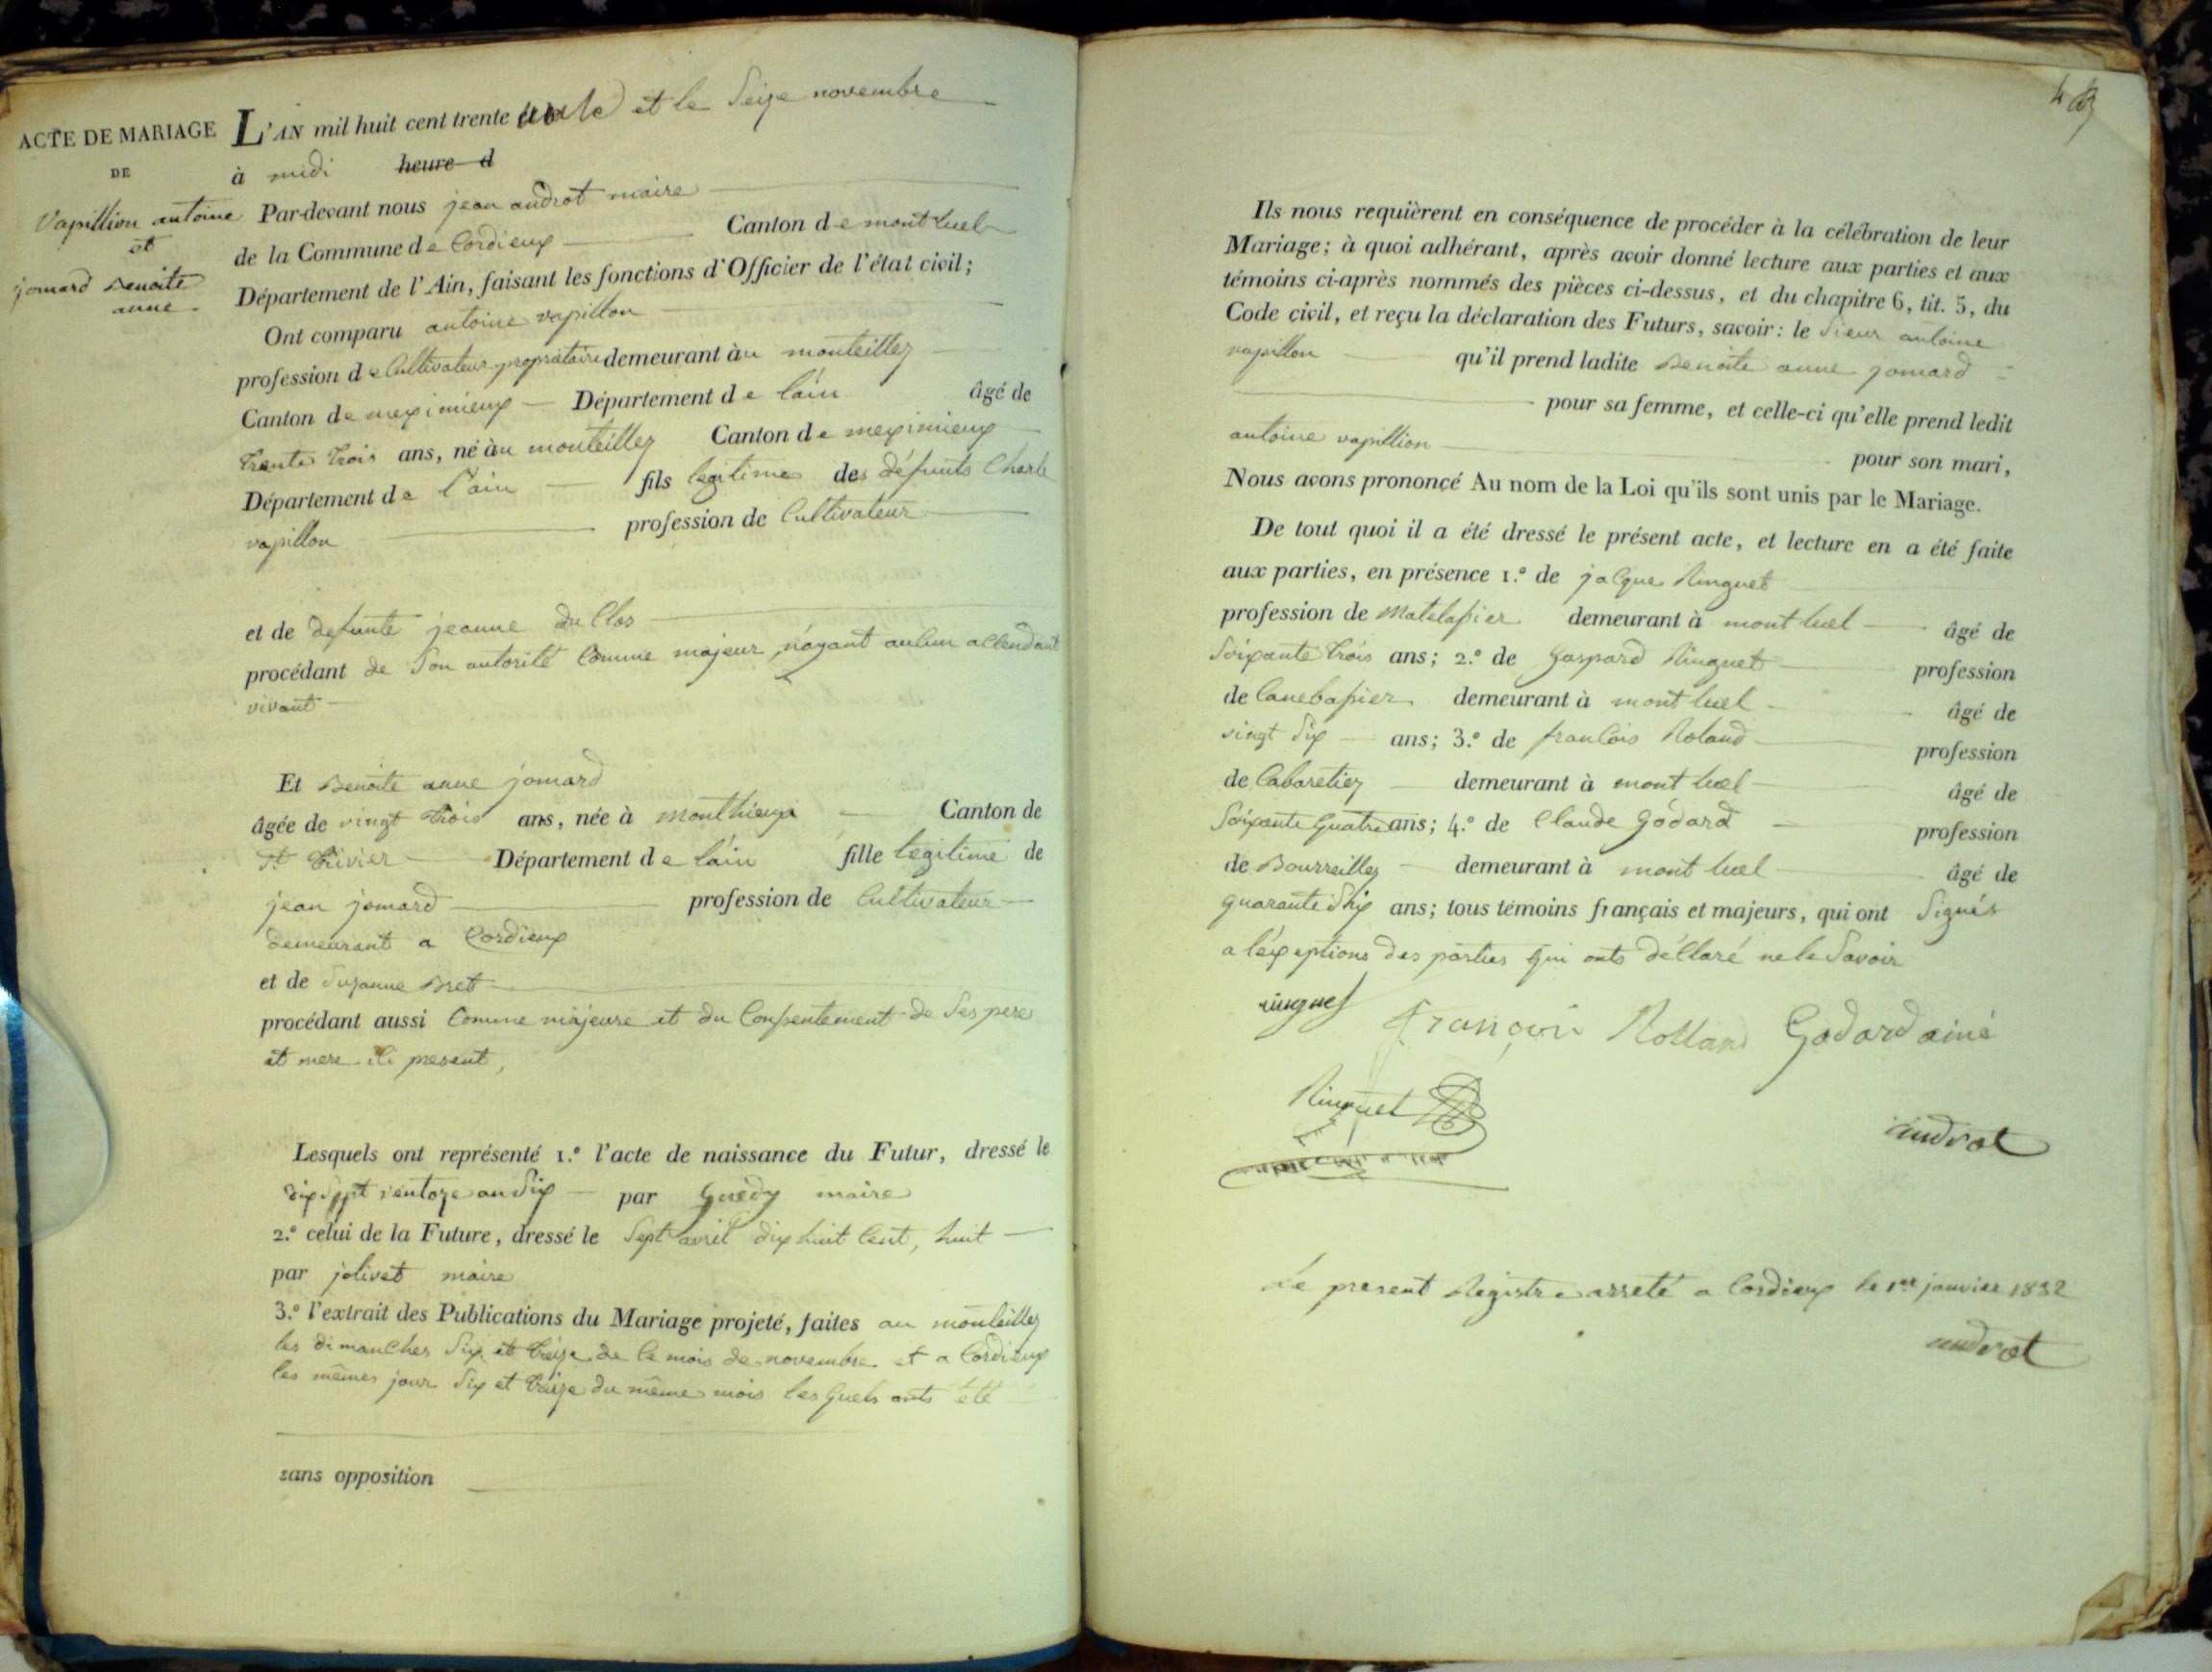 ACTE DE MARIAGE
DE
Vapillion antoine
et
jomard Benoite
anne
L'AN mil huit cent trente et le Seize novembre
à midi heure d
Par-devant nous jean androt maire
de la Commune de Cordieux Canton de mont luel
Département de l'Ain, faisant les fonctions d'Officier de l'état civil;
Ont comparu antoine vapillon
profession de Cultivateur propriétaire demeurant àu monteillez
Canton de meximieux Département de láin âgé de
trente trois ans, né àu monteillez Canton de meximieux
Département de l'ain fils legitime des défunts Charle
vapillon profession de Cultivateur
et de defunte jeanne du Clos
procédant de Son autorité Comme majeur, n'ayant aucun accendant
vivant
Et Benoite anne jomard
âgée de vingt trois ans, née à monthieux Canton de
St trivier Département de láin fille legitime de
jean jomard profession de Cultivateur
demeurant a Cordieux
et de Suzanne Bret
procédant aussi Comme majeure et du Consentement de Ses pere
et mere ici present,
Lesquels ont représenté 1.º l'acte de naissance du Futur, dressé le
dix Sept ventoze an Six par Guedy maire
2.º celui de la Future, dressé le Sept avril dix huit Cent, huit
par jolivet maire
3.º l'extrait des Publications du Mariage projeté, faites au monteillez
les dimanches Six et treize de Ce mois de novembre et a Cordieux
les mêmes jour Six et treize du même mois les quels onts été
sans opposition
Ils nous requièrent en conséquence de procéder à la célébration de leur
Mariage; à quoi adhérant, après avoir donné lecture aux parties et aux
témoins ci-après nommés des pièces ci-dessus, et du chapitre 6, tit. 5, du
Code civil, et reçu la déclaration des Futurs, savoir: le Sieur antoine
vapillon qu'il prend ladite Benoite anne jomard
pour sa femme, et celle-ci qu'elle prend ledit
antoine vapillion pour son mari,
Nous avons prononcé Au nom de la Loi qu'ils sont unis par le Mariage.
De tout quoi il a été dressé le présent acte, et lecture en a été faite
aux parties, en présence 1.º de jaCque Ringuet
profession de Matelassier demeurant à mont luel âgé de
Soixante trois ans; 2.º de Gaspard Ringuet profession
de Canebassier demeurant à mont luel âgé de
vingt Six ans; 3.º de franCois Roland profession
de Cabaretiez demeurant à mont luel âgé de
Soixante Quatre ans; 4.º de Claude Godard profession
de Bourreillez demeurant à mont luel âgé de
quarante Six ans; tous témoins français et majeurs, qui ont Signés
a l'éxeptions des parties Qui onts déClaré ne le Savoir
ringuet François Rolland Godard ainé
Ringuet
androt
Le present Registre arreté a Cordieux le 1er janvier 1832
androt